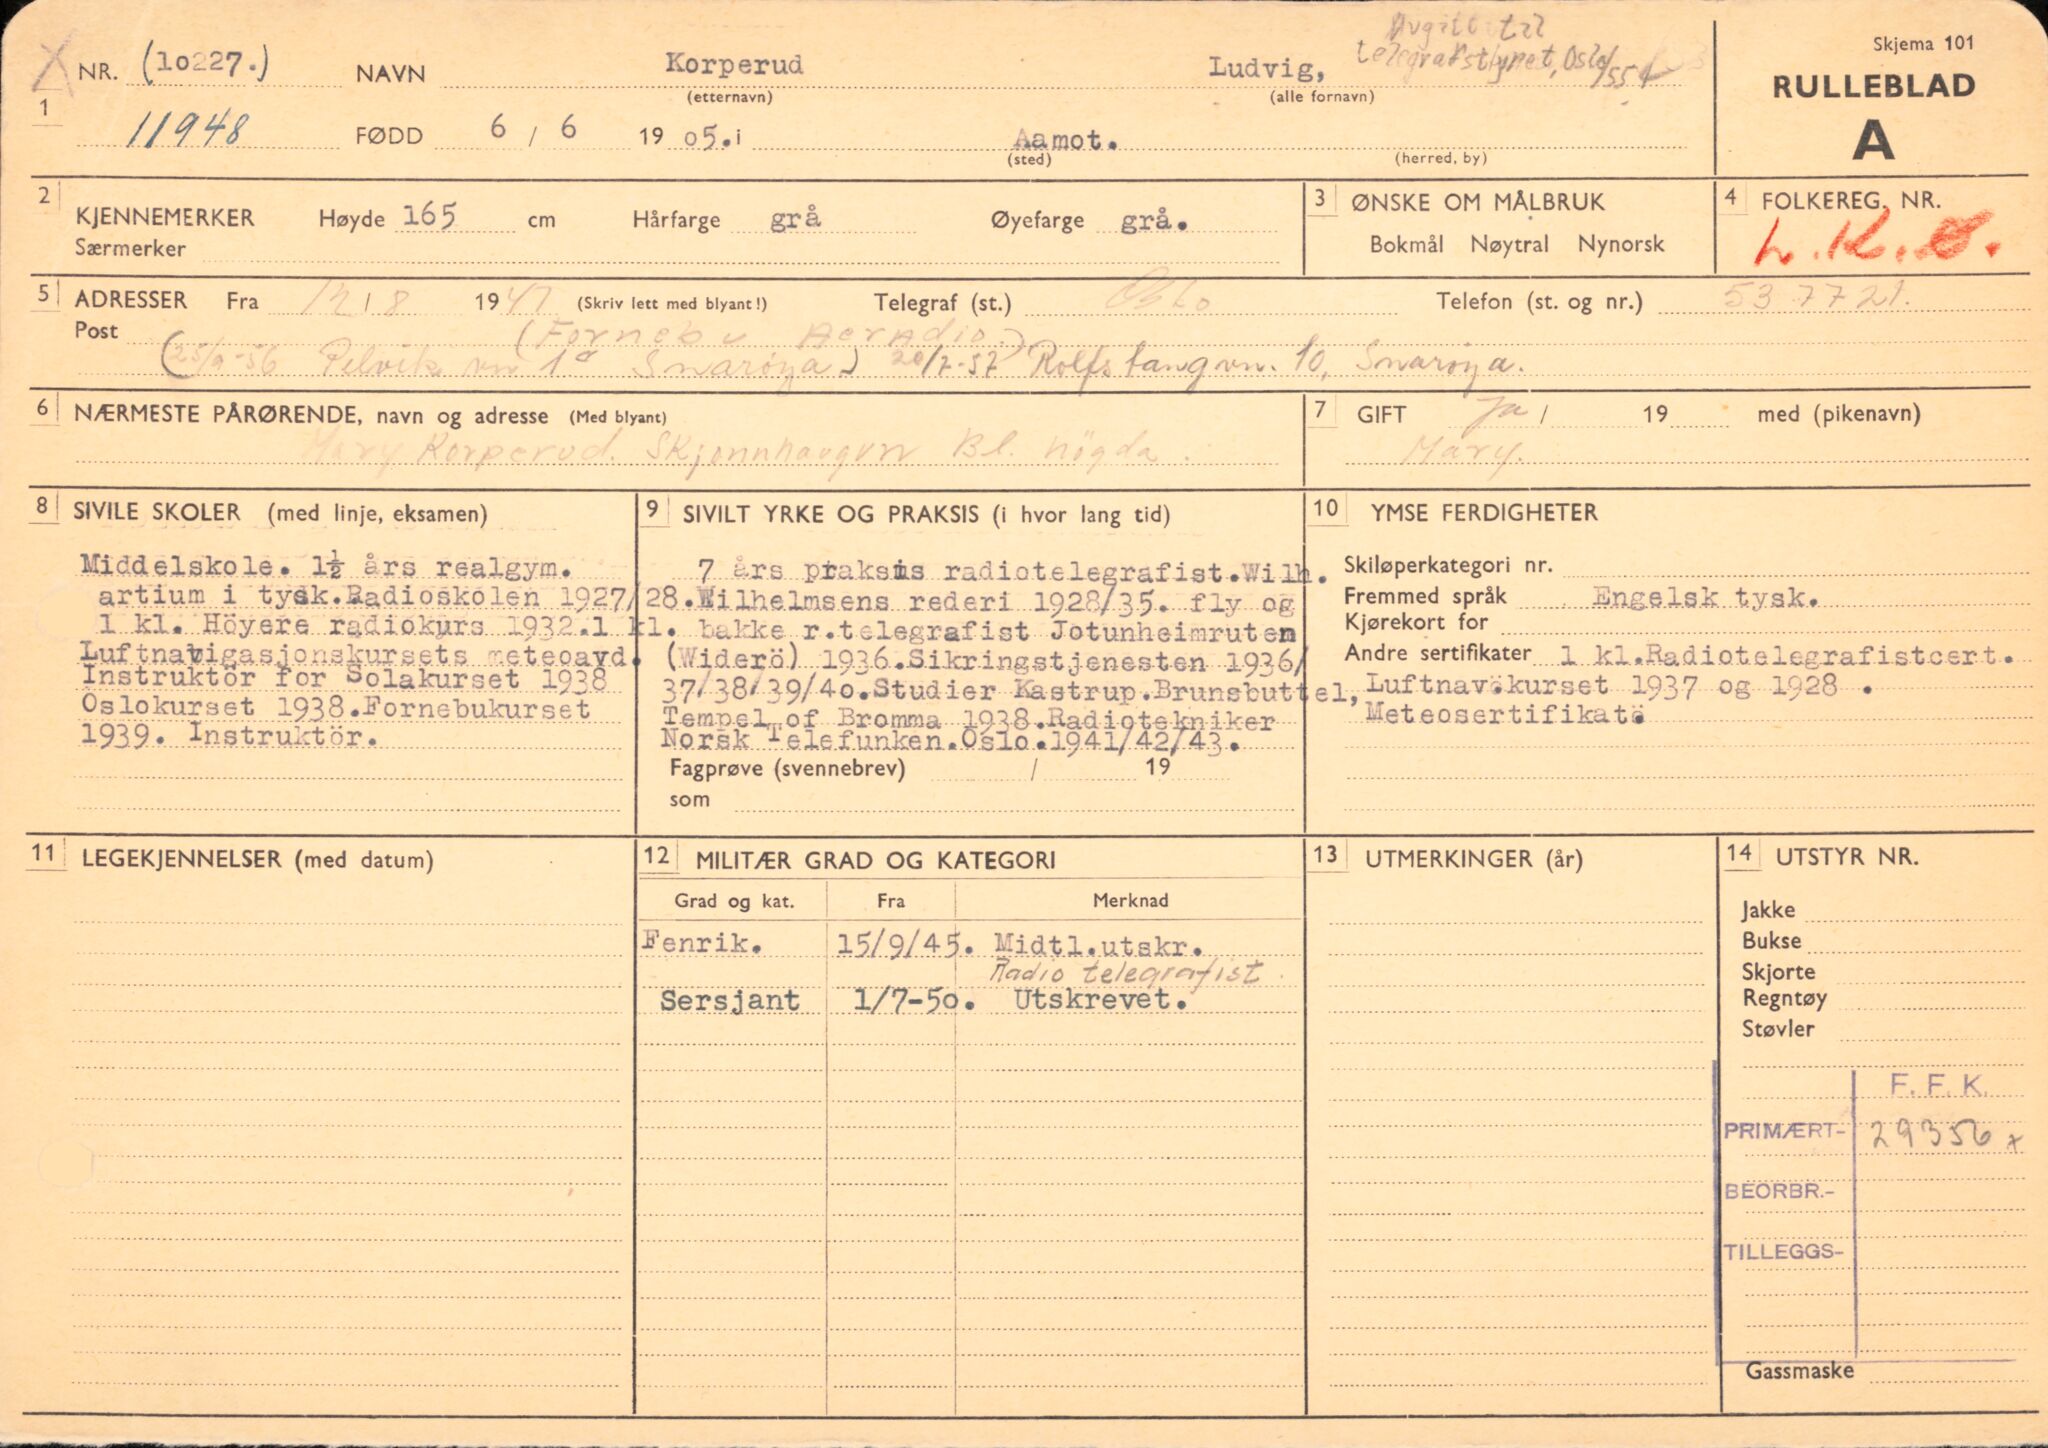 Avgitt til
telegrafstyret, Oslo
Skjema 101
X NR. (10227.) NAVN Korperud Ludvig,
(etternavn) (alle fornavn)
RULLEBLAD
A
1 11948 FØDD 6 / 6 19 05. i Aamot.
(sted) (herred, by)
2 KJENNEMERKER Høyde 165 cm Hårfarge grå Øyefarge grå.
Særmerker
3 ØNSKE OM MÅLBRUK
Bokmål Nøytral Nynorsk
4 FOLKEREG. NR.
L.K.O.
5 ADRESSER Fra 12/8 1947 (Skriv lett med blyant!) Telegraf (st.) Oslo Telefon (st. og nr.) 537721.
Post (Fornebu Aeradio)
(25/9-56 Pelvikvn 1a Snarøya) 20/7-57 Rolfstangvn. 10, Snarøya.
6 NÆRMESTE PÅRØRENDE, navn og adresse (Med blyant)
Mary Korperud. Skjønnhaugvn Bl. högda.
7 GIFT Ja / 19 med (pikenavn)
Mary.
8 SIVILE SKOLER (med linje, eksamen)
Middelskole. 1½ års realgym.
artium i tysk.Radioskolen 1927/28.
1 kl. Höyere radiokurs 1932.1 kl.
Luftnavigasjonskursets meteoavd.
Instruktör for Solakurset 1938
Oslokurset 1938.Fornebukurset
1939. Instruktör.
9 SIVILT YRKE OG PRAKSIS (i hvor lang tid)
7 års praksis radiotelegrafist.Wilh.
Wilhelmsens rederi 1928/35. fly og
bakke r.telegrafist Jotunheimruten
(Widerö) 1936.Sikringstjenesten 1936/
37/38/39/4o.Studier Kastrup.Brunsbuttel,
Tempel of Bromma 1938.Radiotekniker
Norsk Telefunken.Oslo.1941/42/43.
Fagprøve (svennebrev) / 19
som
10 YMSE FERDIGHETER
Skiløperkategori nr.
Fremmed språk Engelsk tysk.
Kjørekort for
Andre sertifikater 1 kl.Radiotelegrafistcert.
Luftnavökurset 1937 og 1928 .
Meteosertifikatö
11 LEGEKJENNELSER (med datum)
12 MILITÆR GRAD OG KATEGORI
Grad og kat. Fra Merknad
Fenrik. 15/9/45. Midtl.utskr.
Radio telegrafist.
Sersjant 1/7-5o. Utskrevet.
13 UTMERKINGER (år)
14 UTSTYR NR.
Jakke
Bukse
Skjorte
Regntøy
Støvler
F. F. K.
PRIMÆRT- 29356 x
BEORBR.-
TILLEGGS-
Gassmaske